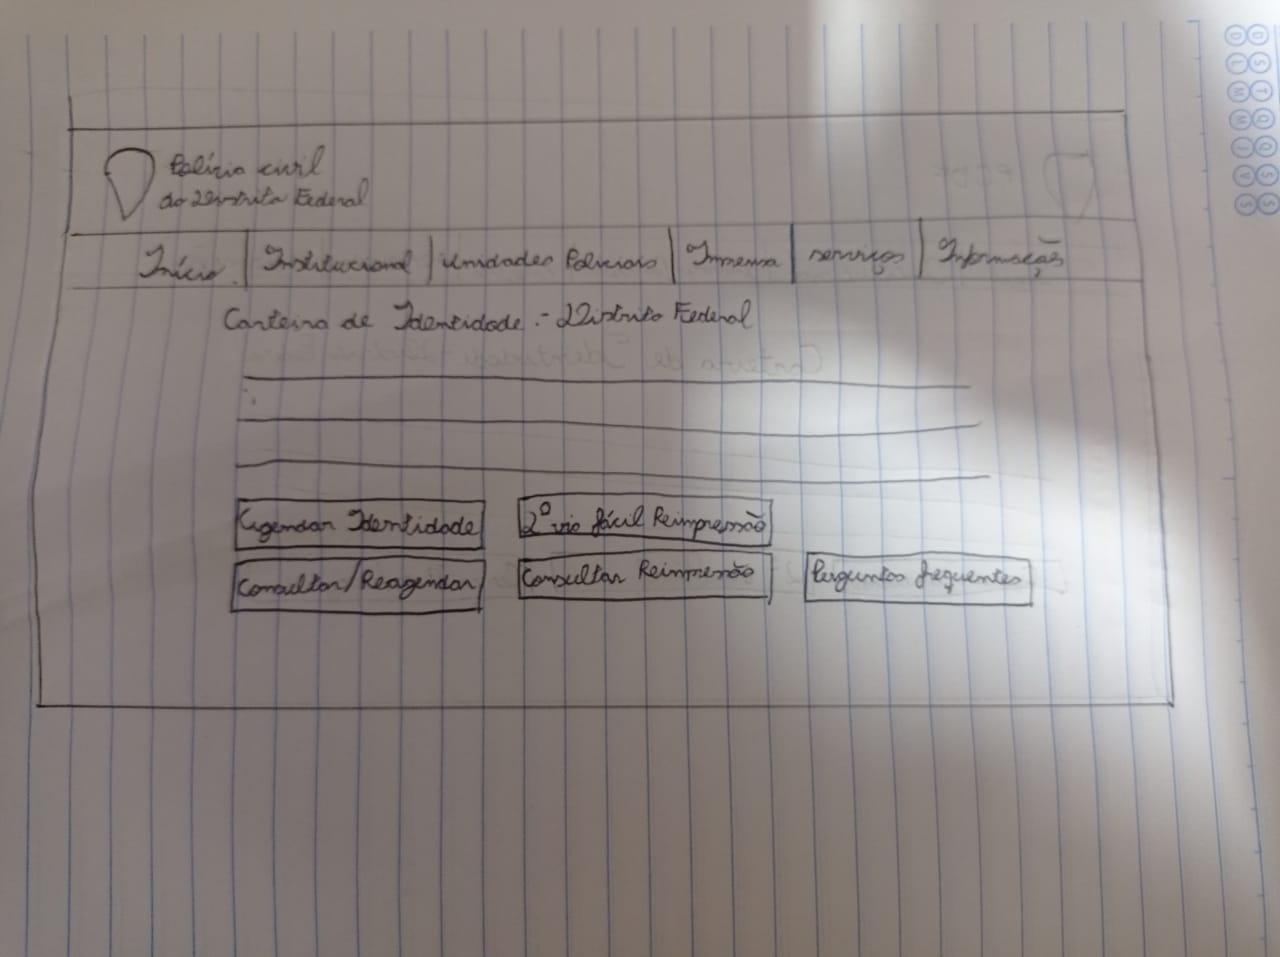 Polícia civil
do Distrito Federal
Início
Institucional
unidades Policiais
Imprensa
serviços
Informações
Carteira de Identidade - Distrito Federal
Agendar Identidade
2º via fácil Reimpressão
Consultar/Reagendar
Consultar Reimpressão
Perguntas frequentes
D S
L T
M Q
M Q
J S
V S
S